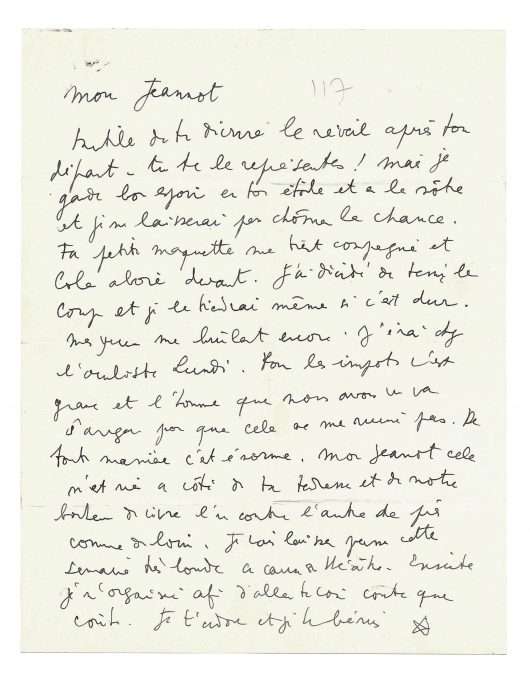 117
Mon Jeannot
Inutile de te décrire le réveil après ton
départ - tu te le représentes ! Mais je
garde bon espoir en ton étoile et a la nôtre
et je ne laisserai pas chômer la chance.
Ta petite maquette me tient compagnie et
Cola aboie devant. J'ai décidé de tenir le
coup et je le tiendrai même si c'est dur.
Mes yeux me brûlent encore. J'irai chez
l'oculiste Lundi. Pour les impots c'est
grave et l'homme que nous avons vu va
s'arranger pour que cela ne me ruine pas. De
toute manière c'est énorme. Mon Jeannot cela
n'est rien a côté de ta tendresse et de notre
bonheur de vivre l'un contre l'autre de près
comme de loin. Je vais laisser passer cette
semaine très lourde a cause théâtre. Ensuite
je m'organise afin d'aller te voir coute que
coute. Je t'adore et je te bénis